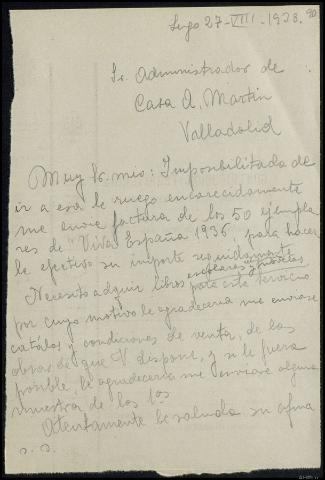 Lugo 27-VIII-1938.
Sr. Administrador de
Casa A. Martín
Valladolid
Muy Sr. mio: Imposibilitada de
ir a esa le ruego encarecidamente
me envie factura de los 50 ejempla
res de "Viva España 1936, para hacer
le efectivo su importe
escolares y novelas
Necesito adquir libros para este servicio
por cuyo motivo le agradeceria me enviase
catálos y condiciones de venta, de las
obras de que V. dispone, y si le fuera
posible, le agradeceria me enviase alguna
muestra de los 1.os
Atentamente le saluda su afma
s. s.